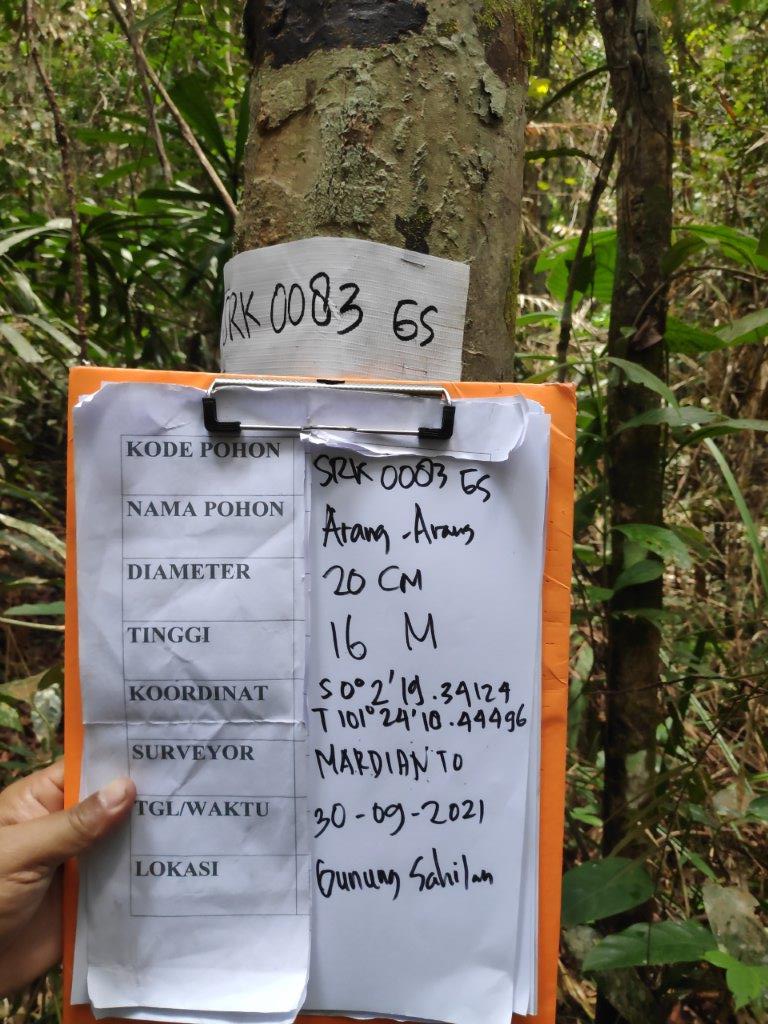 SRK 0083 GS
KODE POHON SRK 0083 GS
NAMA POHON Arang-Arang
DIAMETER 20 CM
TINGGI 16 M
KOORDINAT S 0° 2' 19.34124
T 101° 24' 10.44496
SURVEYOR MARDIANTO
TGL/WAKTU 30-09-2021
LOKASI Gunung Sahilan